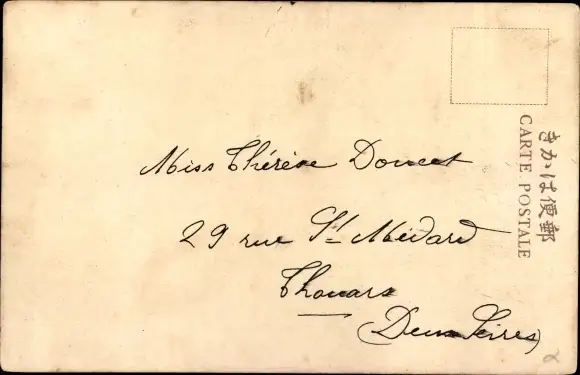 きかは便郵
CARTE POSTALE
Miss Thérèse Doucet
29 rue St Médard
Thouars
(Deux Sèvres)